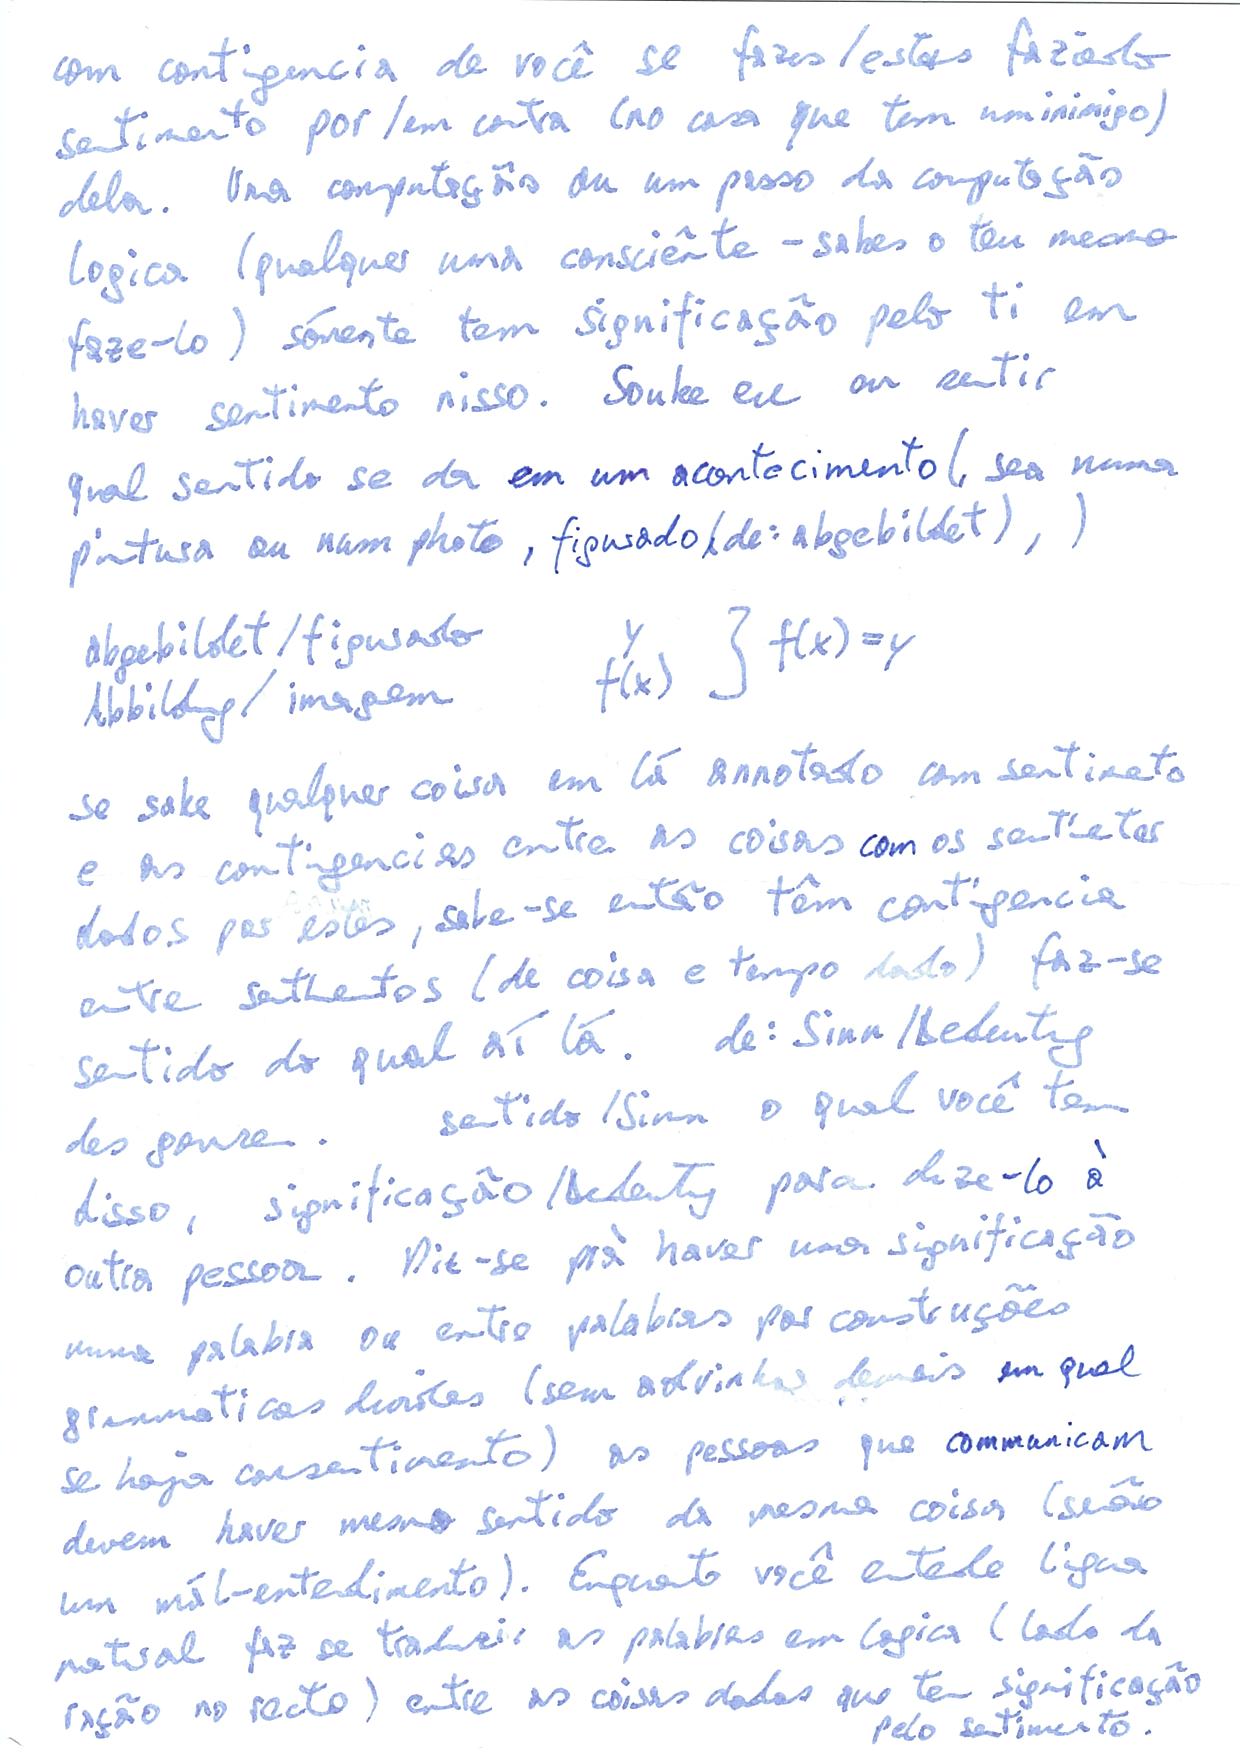 com contingencia de você se fazes/estes faziedo
sentimento por/em contra (no casa que tem um inimigo)
dela. Uma computação ou um passo da computação
logica (qualquer uma consciênte - sabes o teu mesmo
faze-lo) sómente tem significação pelo ti em
haver sentimento nisso. Soube eu ou sentir
qual sentido se da em um acontecimento (, sea numa
pintura ou num photo, figurado (de: abgebildet), )
abgebildet/figurado y } f(x) = y
Abbildung/imagem f(x)
se sabe qualquer coisa em lá annotado com sentimeto
e as contingencias entre as coisas com os sentimetos
dados por estes, sabe-se então têm contigencia
entre sentimentos (de coisa e tempo dado) faz-se
sentido do qual aí lá. de: Sinn/Bedeutung
des ganzen. sentido/Sinn o qual você tem
disso, significação/Bedeutung para dize-lo à
outra pessoa. Dit-se prà haver uma significação
numa palabra ou entre palabras por construções
grammaticas (sem adivinhar demais em qual
se haja consentimento) as pessoas que communicam
devem haver mesmo sentido da mesma coisa (senão
um mál-entedimento). Enquanto você entede lígua
natural faz se traduzir as palabras em logica (lado da
ração no recto) entre as coisas dadas que tem significação
pelo sentimento.